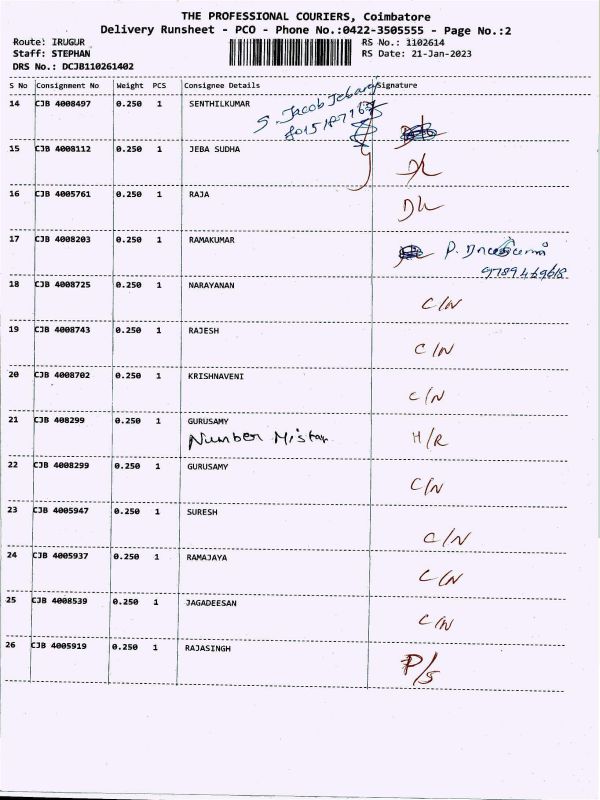 THE PROFESSIONAL COURIERS, Coimbatore
Delivery Runsheet - PCO - Phone No.:0422-3505555 - Page No.:2
Route: IRUGUR RS No.: 1102614
Staff: STEPHAN RS Date: 21-Jan-2023
DRS No.: DCJB110261402
S No Consignment No Weight PCS Consignee Details Signature
14 CJB 4008497 0.250 1 SENTHILKUMAR
S. Jacob Jebaraj
15 CJB 4008112 0.250 1 JEBA SUDHA
16 CJB 4005761 0.250 1 RAJA
17 CJB 4008203 0.250 1 RAMAKUMAR
18 CJB 4008725 0.250 1 NARAYANAN
C/N
19 CJB 4008743 0.250 1 RAJESH
C/N
20 CJB 4008702 0.250 1 KRISHNAVENI
C/N
21 CJB 408299 0.250 1 GURUSAMY
Number Mistak H/R
22 CJB 4008299 0.250 1 GURUSAMY
C/N
23 CJB 4005947 0.250 1 SURESH
C/N
24 CJB 4005937 0.250 1 RAMAJAYA
C/N
25 CJB 4008539 0.250 1 JAGADEESAN
C/N
26 CJB 4005919 0.250 1 RAJASINGH
P/S